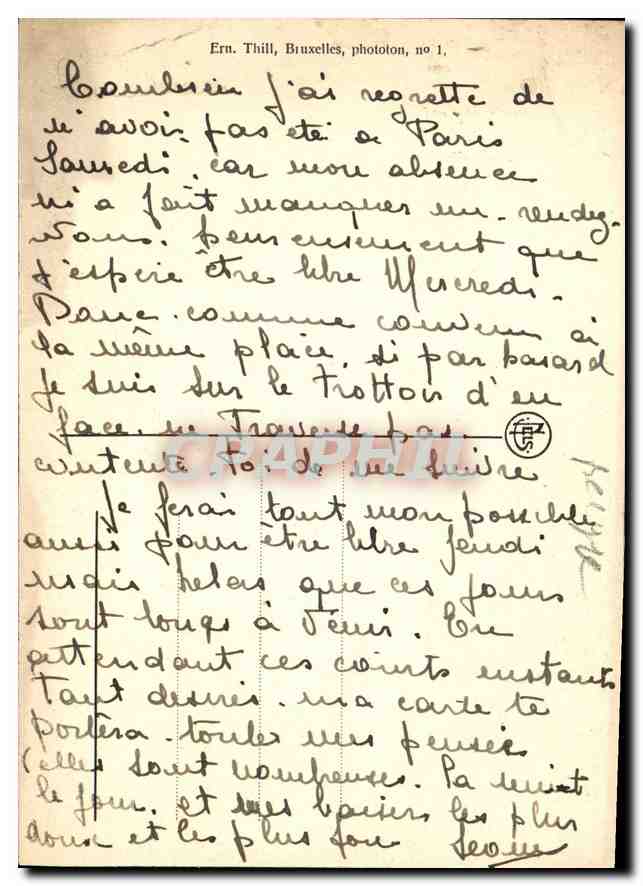 Ern. Thill, Bruxelles, phototon, no 1.
Combien j'ai regretté de
n'avoir pas été a Paris
Samedi, car mon absence
m'a fait manquer un rendez-
vous. heureusement que
j'espère être libre Mercredi.
Donc comme convenu à
la même place, si par hasard
je suis sur le trottoir d'en
face. ne traverse pas.
contente toi de me suivre
Je ferai tout mon possible
aussi pour être libre Jeudi
mais helas que ces jours
sont longs à venir. En
attendant ces courts instants
tant desirés. ma carte te
portera toutes mes pensées
(elles sont nombreuses. la nuit
le jour. et mes baisers les plus
doux et les plus fou
CPARHIL